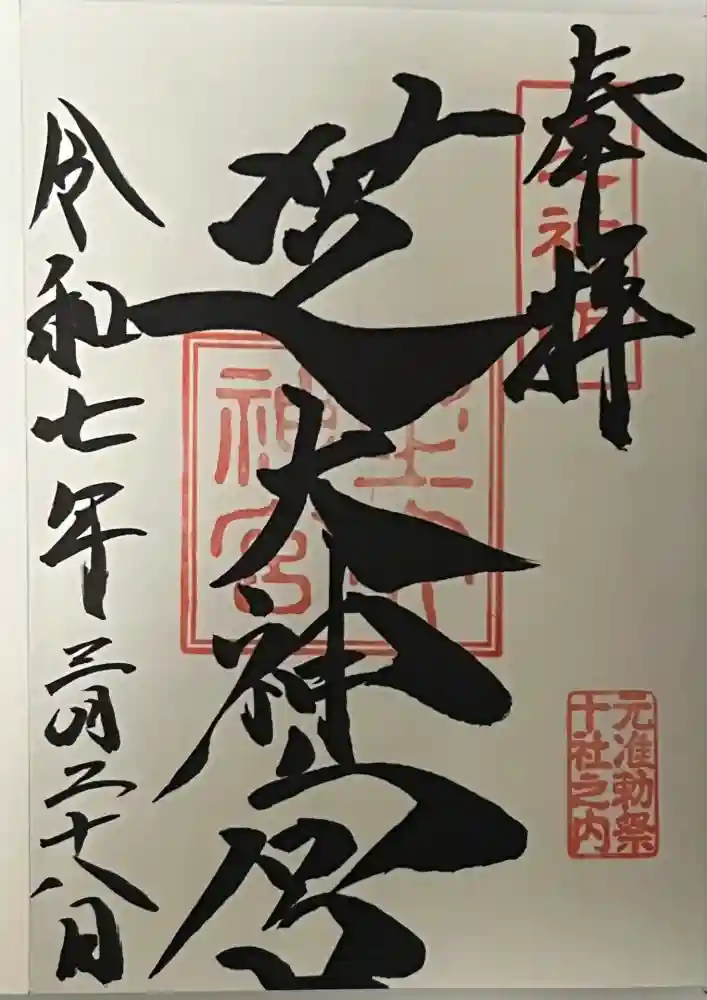 奉拝
芝大神宮
令和七年三月二十八日
元准勅祭
十社之内
神宮